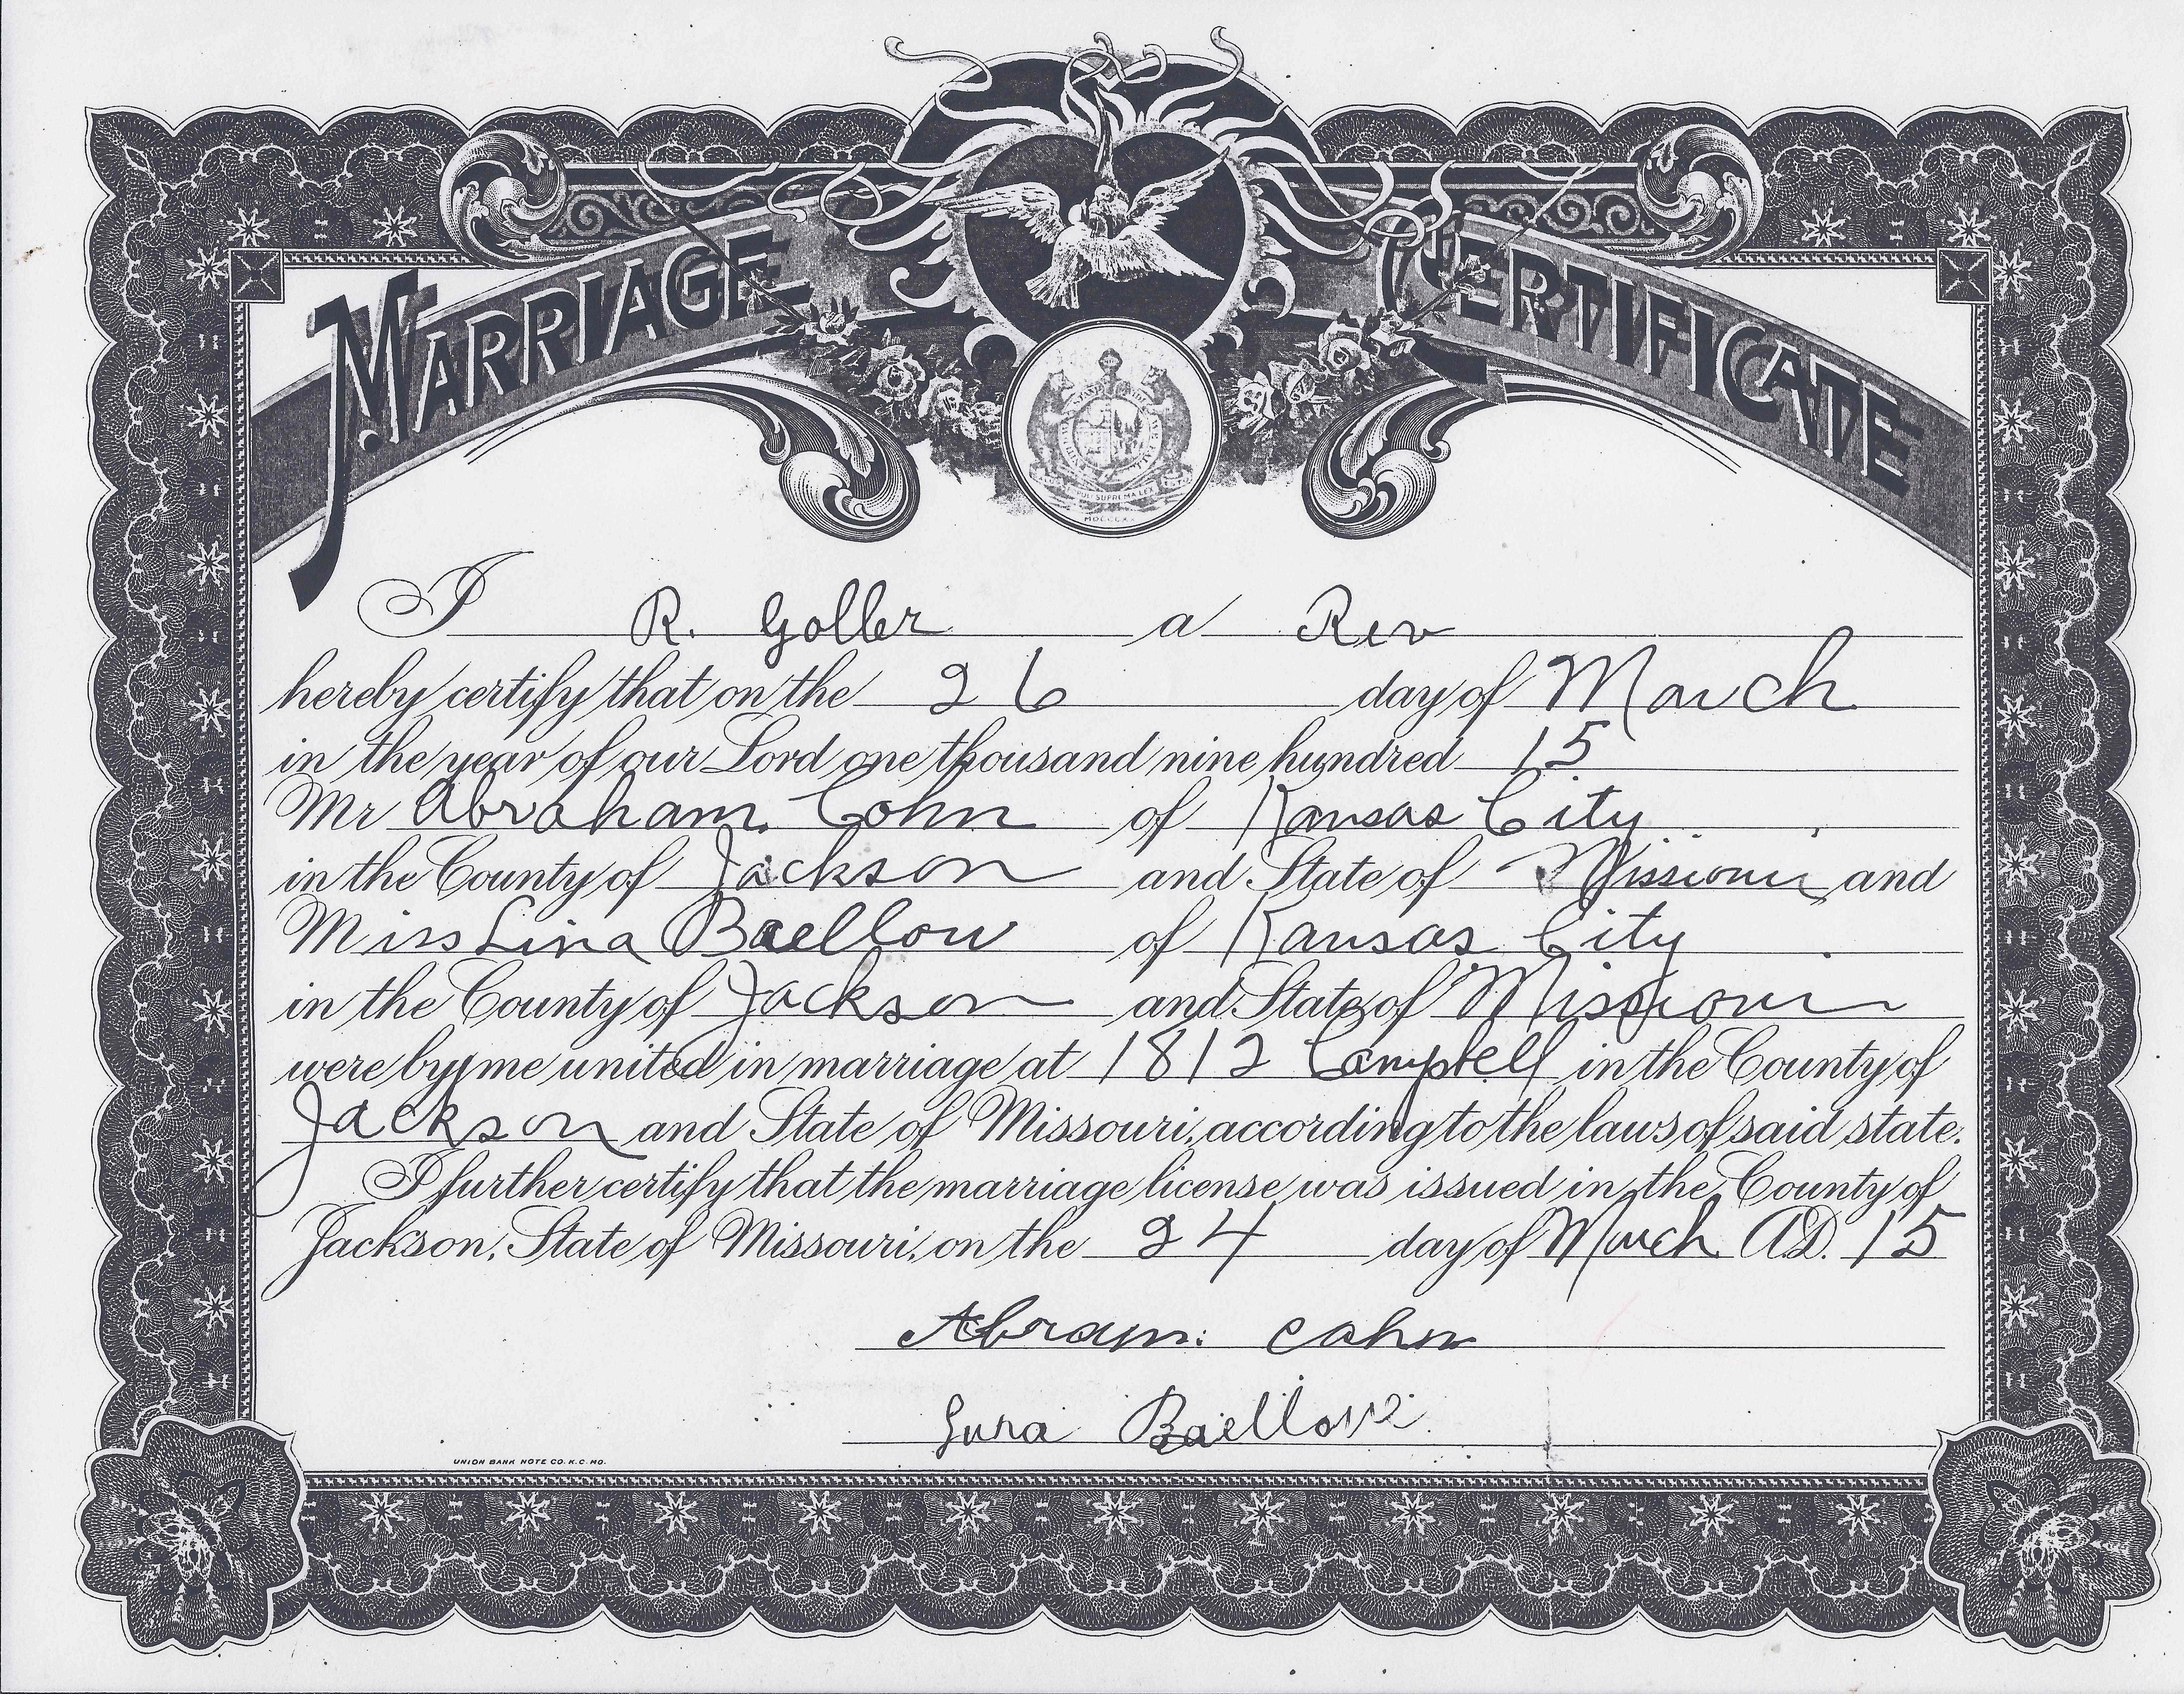 MARRIAGE CERTIFICATE
POPULI SUPREMA LEX
I R. Goller a Rev
hereby certify that on the 26 day of March
in the year of our Lord one thousand nine hundred 15
Mr Abraham Cohn of Kansas City
in the County of Jackson and State of Missouri and
Miss Lina Baellow of Kansas City
in the County of Jackson and State of Missouri
were by me united in marriage at 1812 Campbell in the County of
Jackson and State of Missouri, according to the laws of said state.
I further certify that the marriage license was issued in the County of
Jackson, State of Missouri, on the 24 day of March A.D. 15
Abram: Cohn
Baellow
UNION BANK NOTE CO. K.C. MO.